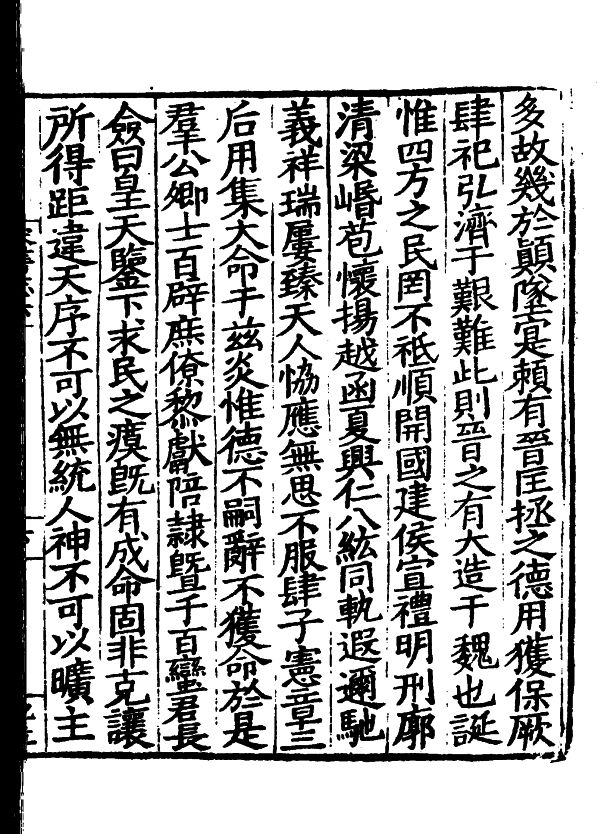 多故幾於顛墜寔賴有晉匡拯之德用獲保厥
肆祀弘濟于艱難此則晉之有大造于魏也誕
惟四方之民罔不祗順開國建侯宣禮明刑廓
清梁㟭苞懷揚越函夏興仁八紘同軌遐邇馳
義祥瑞屢臻天人協應無思不服肆予憲章三
后用集大命于兹炎惟德不嗣辭不獲命於是
羣公卿士百辟庶僚黎獻陪隷曁于百蠻君長
僉曰皇天鑒下求民之瘼旣有成命固非克讓
所得距違天序不可以無統人神不可以曠主